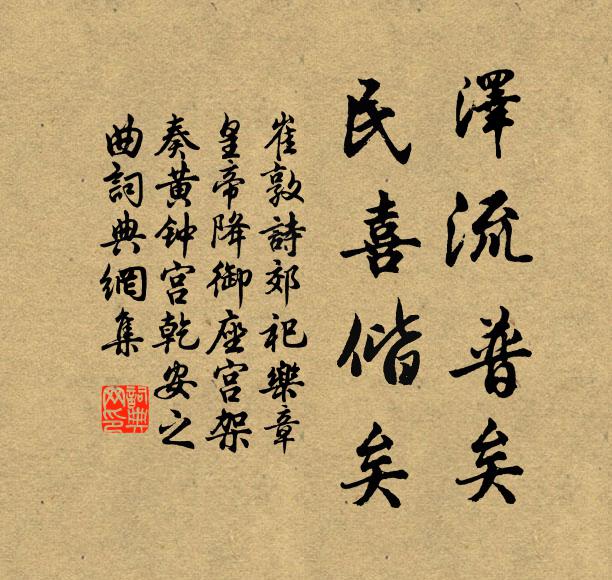 澤流普矣
民喜偕矣
崔敦詩郊祀樂章
皇帝降御座宫架
奏黄钟宫乾安之
曲詞典網集
詞典网印